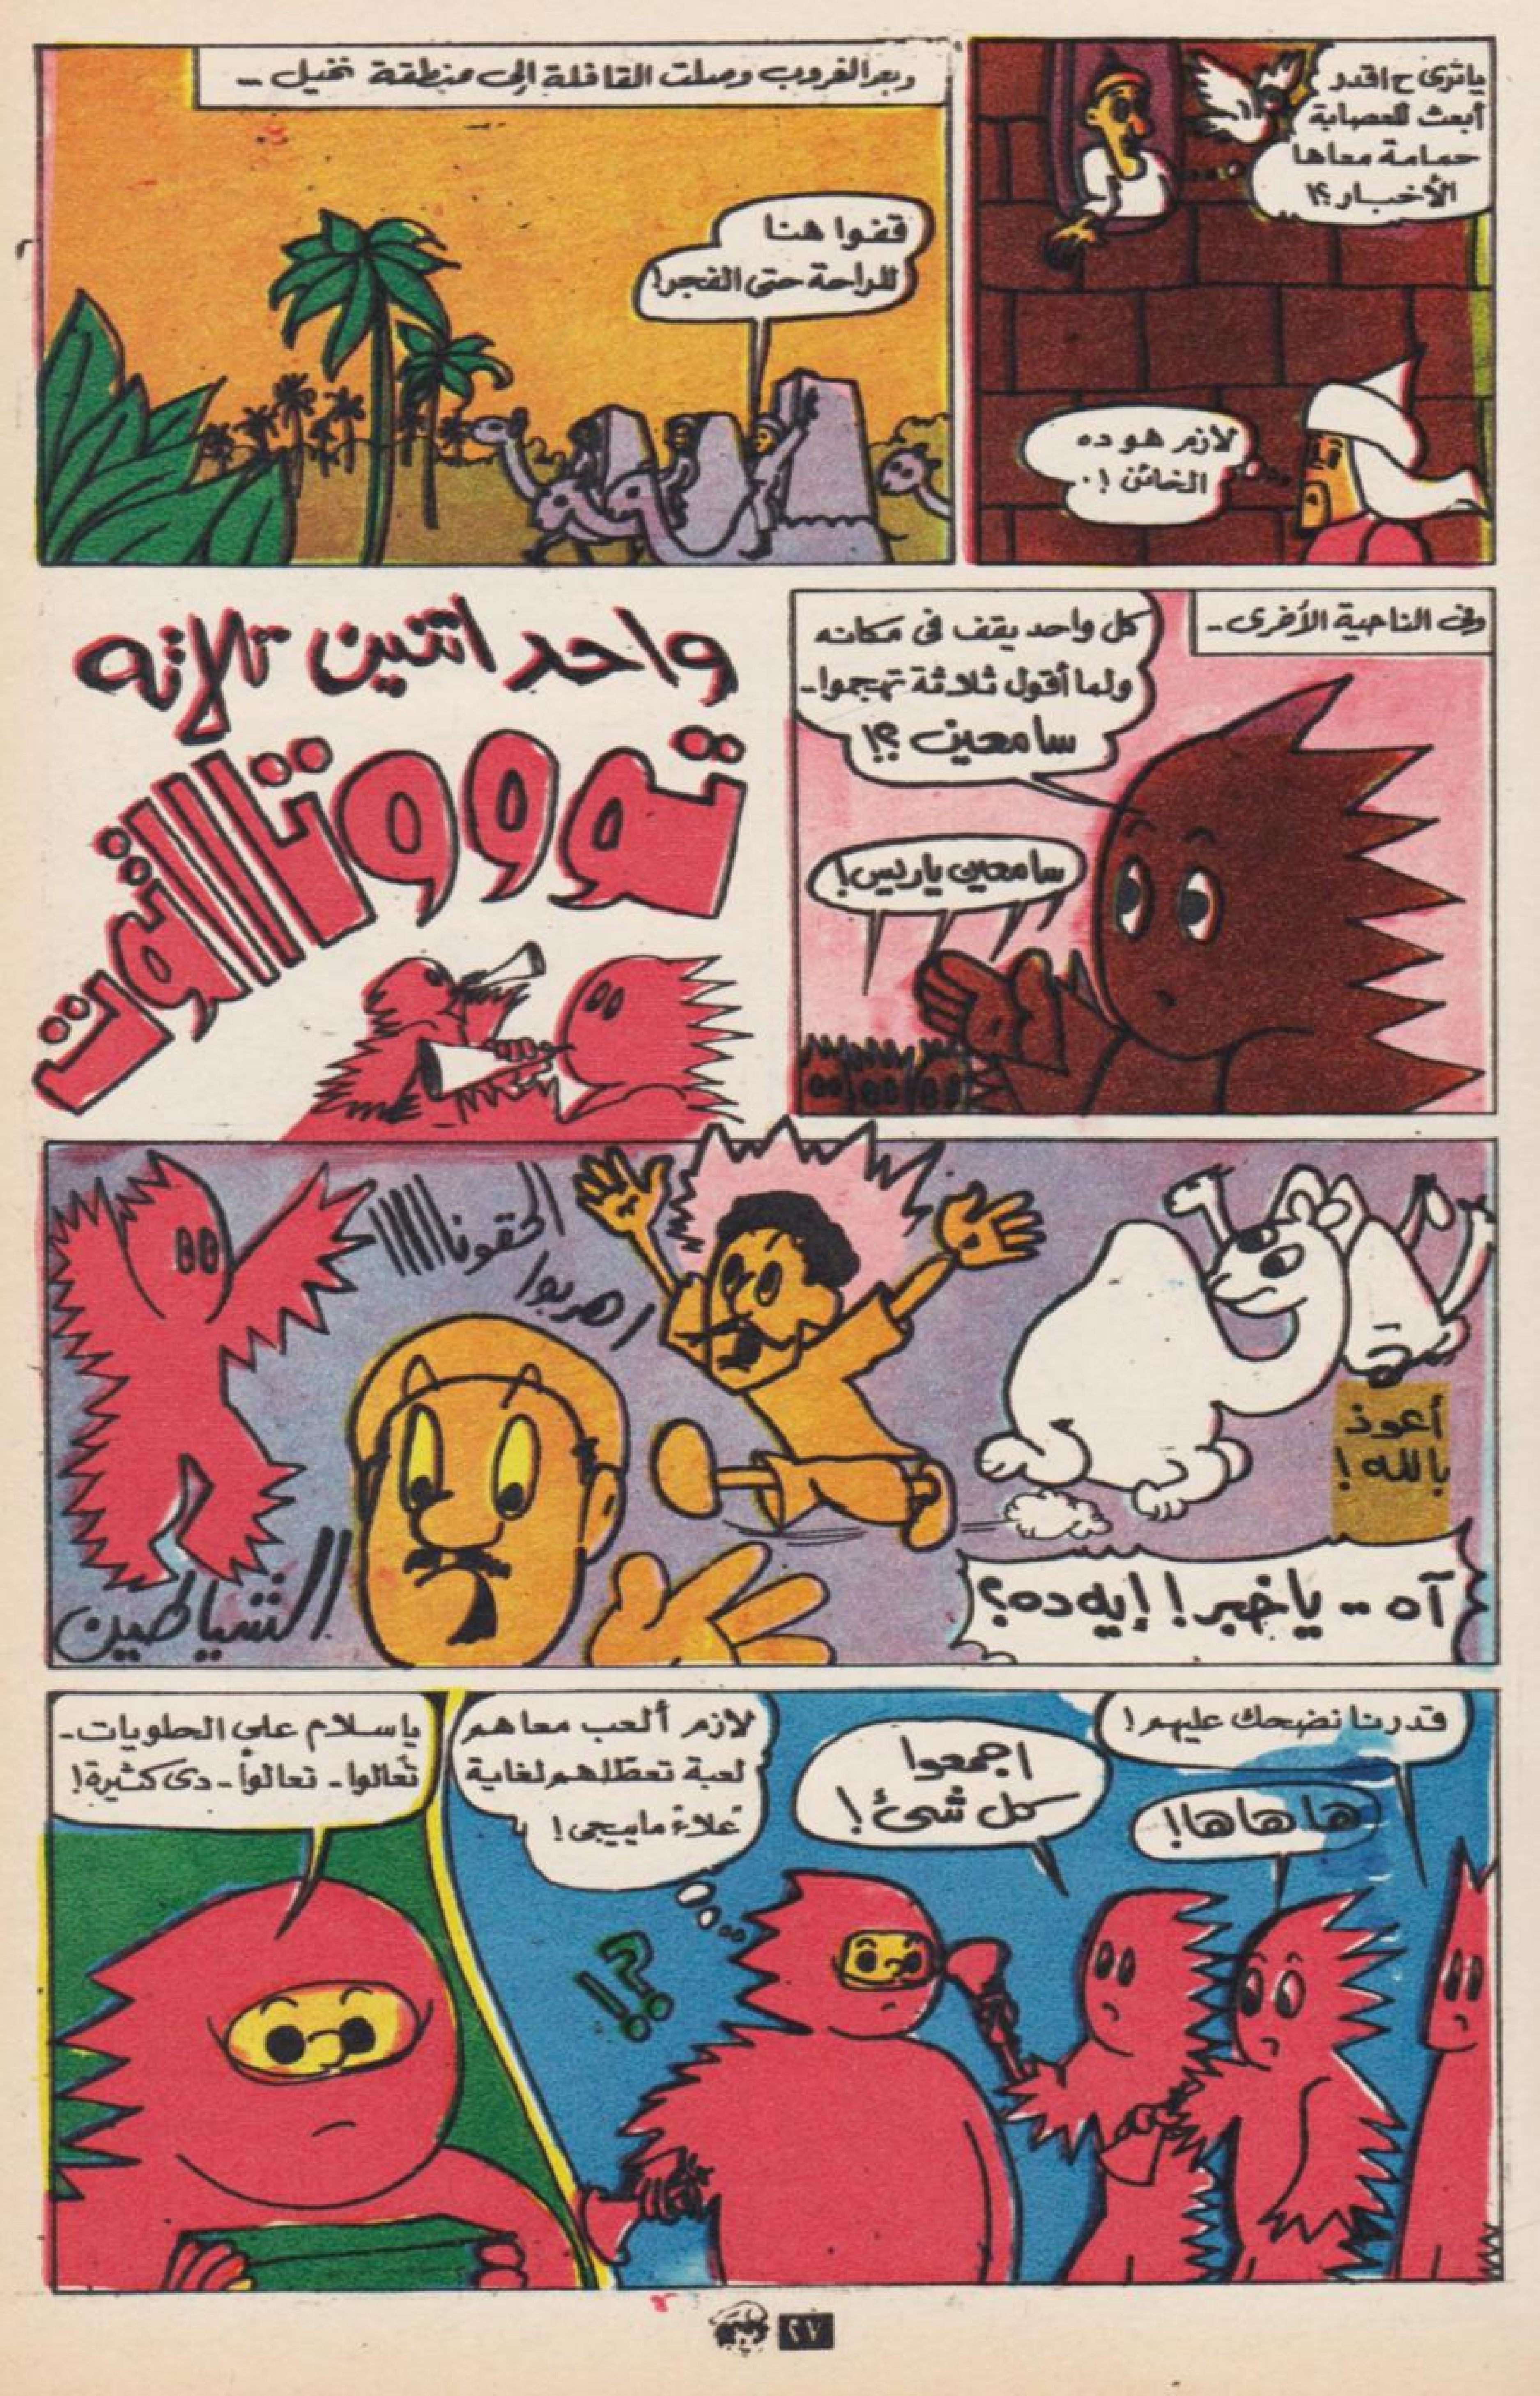 ياترى ح اقدر
أبعث للعصابة
حمامة معاها
الأخبار؟!
لازم هو ده
الخائن!.
وبعد الغروب وصلت القافلة إلى منطقة نخيل ..
قفوا هنا
للراحة حتى الفجر!
وفى الناحية الأخرى ..
كل واحد يقف فى مكانه
ولما أقول ثلاثة تهجموا ..
سامعين؟!
سامعين ياريس!
واحد اتنين تلاته
تووووتاااتوت
أعوذ
بالله!
آه .. ياخبر! إيه ده؟
الحقوناااااا
اهربوا
الشياطين
قدرنا نضحك عليهم!
ها ها ها!
اجمعوا
كل شئ!
لازم ألعب معاهم
لعبة تعطلهم لغاية
علاء ماييجى!
؟!
ياسلام على الحلويات ..
تعالوا .. تعالوا .. دى كثيرة!
٢٧